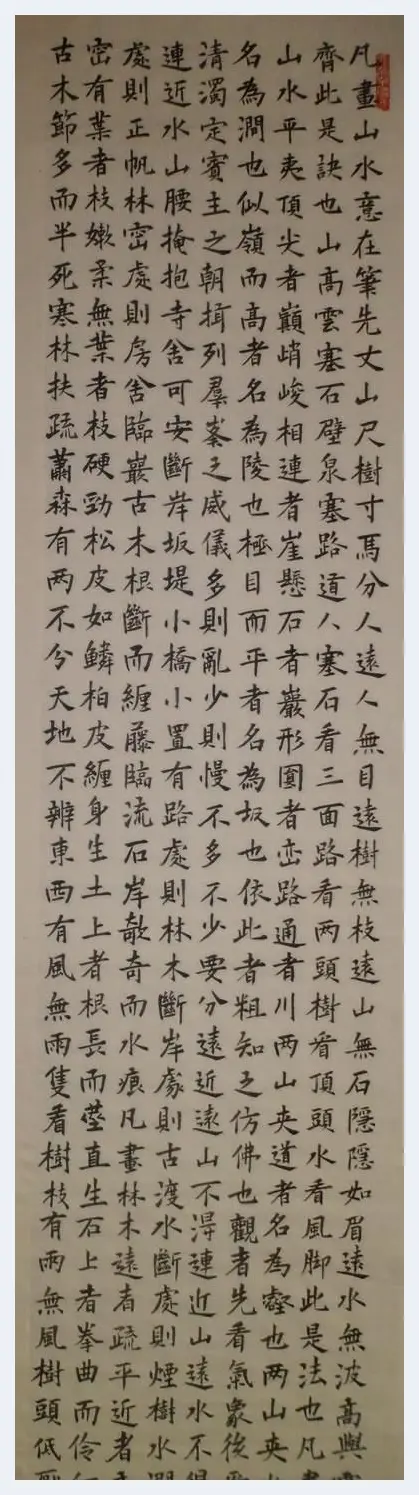 凡畫山水意在筆先丈山尺樹寸馬分人遠人無目遠樹無枝遠山無石隱隱如眉遠水無波高與
齊此是訣也山高雲塞石壁泉塞路道人塞石看三面路看兩頭樹看頂頭水看風脚此是法也凡
山水平夷頂尖者巔峭峻相連者崖懸石者巖形圓者峦路通者川两山夹道者名為壑也两山夹
名為澗也似嶺而高者名為陵也極目而平者名為坂也依此者粗知之仿佛也觀者先看氣象後
清濁定賓主之朝揖列羣峯之威儀多則亂少則慢不多不少要分遠近遠山不得連近山遠水不得
連近水山腰掩抱寺舍可安斷岸坂堤小橋小置有路處則林木斷岸處則古渡水斷處則煙樹水
處則正帆林密處則房舍臨巖古木根斷而纏藤臨流石岸欹奇而水痕凡畫林木遠者疏平近者
密有葉者枝嫩柔無葉者枝硬勁松皮如鱗柏皮纏身生土上者根長而莖直生石上者拳曲而伶
古木節多而半死寒林扶疏蕭森有两不分天地不辨東西有風無雨隻看樹枝有雨無風樹頭低